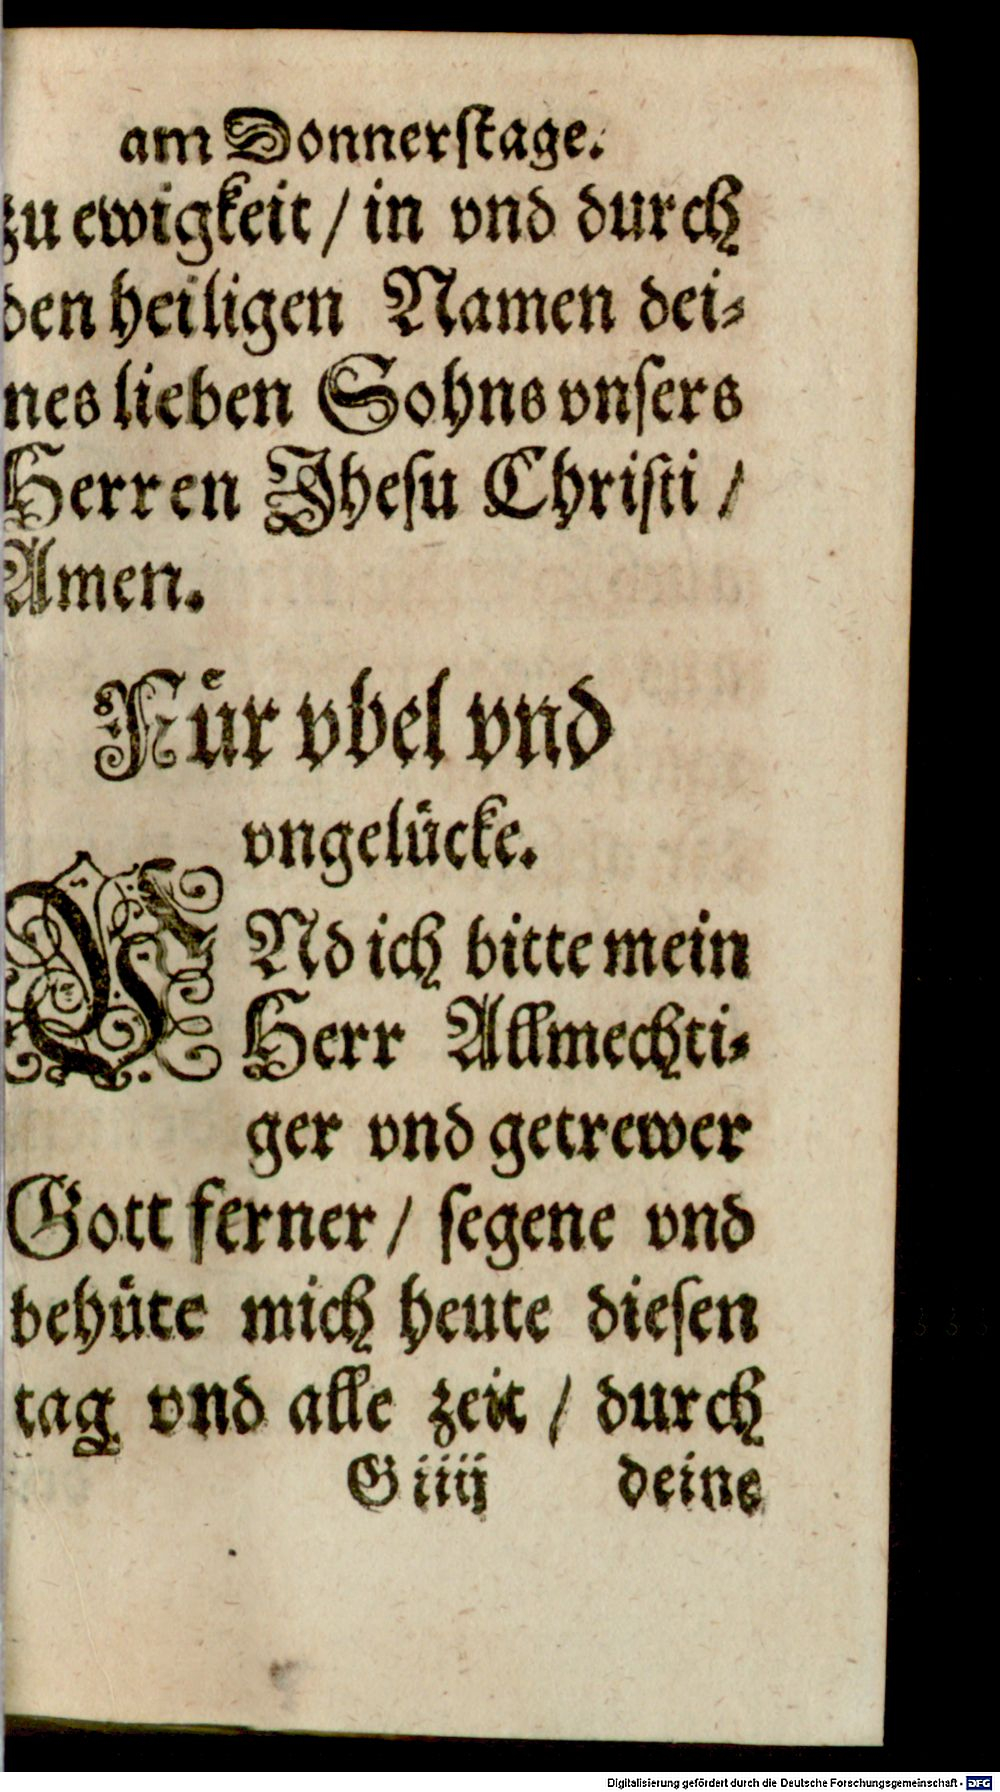 am Donnerstage.
zu ewigkeit / in vnd durch
den heiligen Namen dei⸗
nes lieben Sohns vnsers
Herren Jhesu Christi /
Amen.
Fuͤr vbel vnd
vngeluͤcke.
VNd ich bitte mein
Herr Allmechti⸗
ger vnd getrewer
Gott ferner / segene vnd
behuͤte mich heute diesen
tag vnd alle zeit / durch
G iiij deine
Digitalisierung gefördert durch die Deutsche Forschungsgemeinschaft - DFG